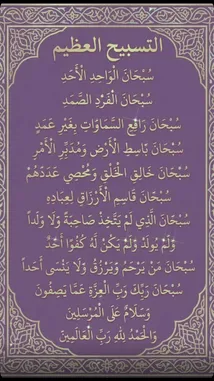 التسبيح العظيم
سُبْحَانَ الْوَاحِدِ الْأَحَدِ
سُبْحَانَ الْفَرْدِ الصَّمَدِ
سُبْحَانَ رَافِعِ السَّمَاوَاتِ بِغَيْرِ عَمَدٍ
سُبْحَانَ بَاسِطِ الْأَرْضِ وَمُدَبِّرِ الْأَمْرِ
سُبْحَانَ خَالِقِ الْخَلْقِ وَمُحْصِي عَدَدَهُمْ
سُبْحَانَ قَاسِمِ الْأَرْزَاقِ لِعِبَادِهِ
سُبْحَانَ الَّذِي لَمْ يَتَّخِذْ صَاحِبَةً وَلَا وَلَداً
وَلَمْ يُولَدْ وَلَمْ يَكُنْ لَهُ كُفُوًا أَحَدٌ
سُبْحَانَ مَنْ يَرْحَمُ وَيَرْزُقُ وَلَا يَنْسَى أَحَداً
سُبْحَانَ رَبِّكَ رَبِّ الْعِزَّةِ عَمَّا يَصِفُونَ
وَسَلَامٌ عَلَى الْمُرْسَلِينَ
وَالْحَمْدُ لِلَّهِ رَبِّ الْعَالَمِينَ